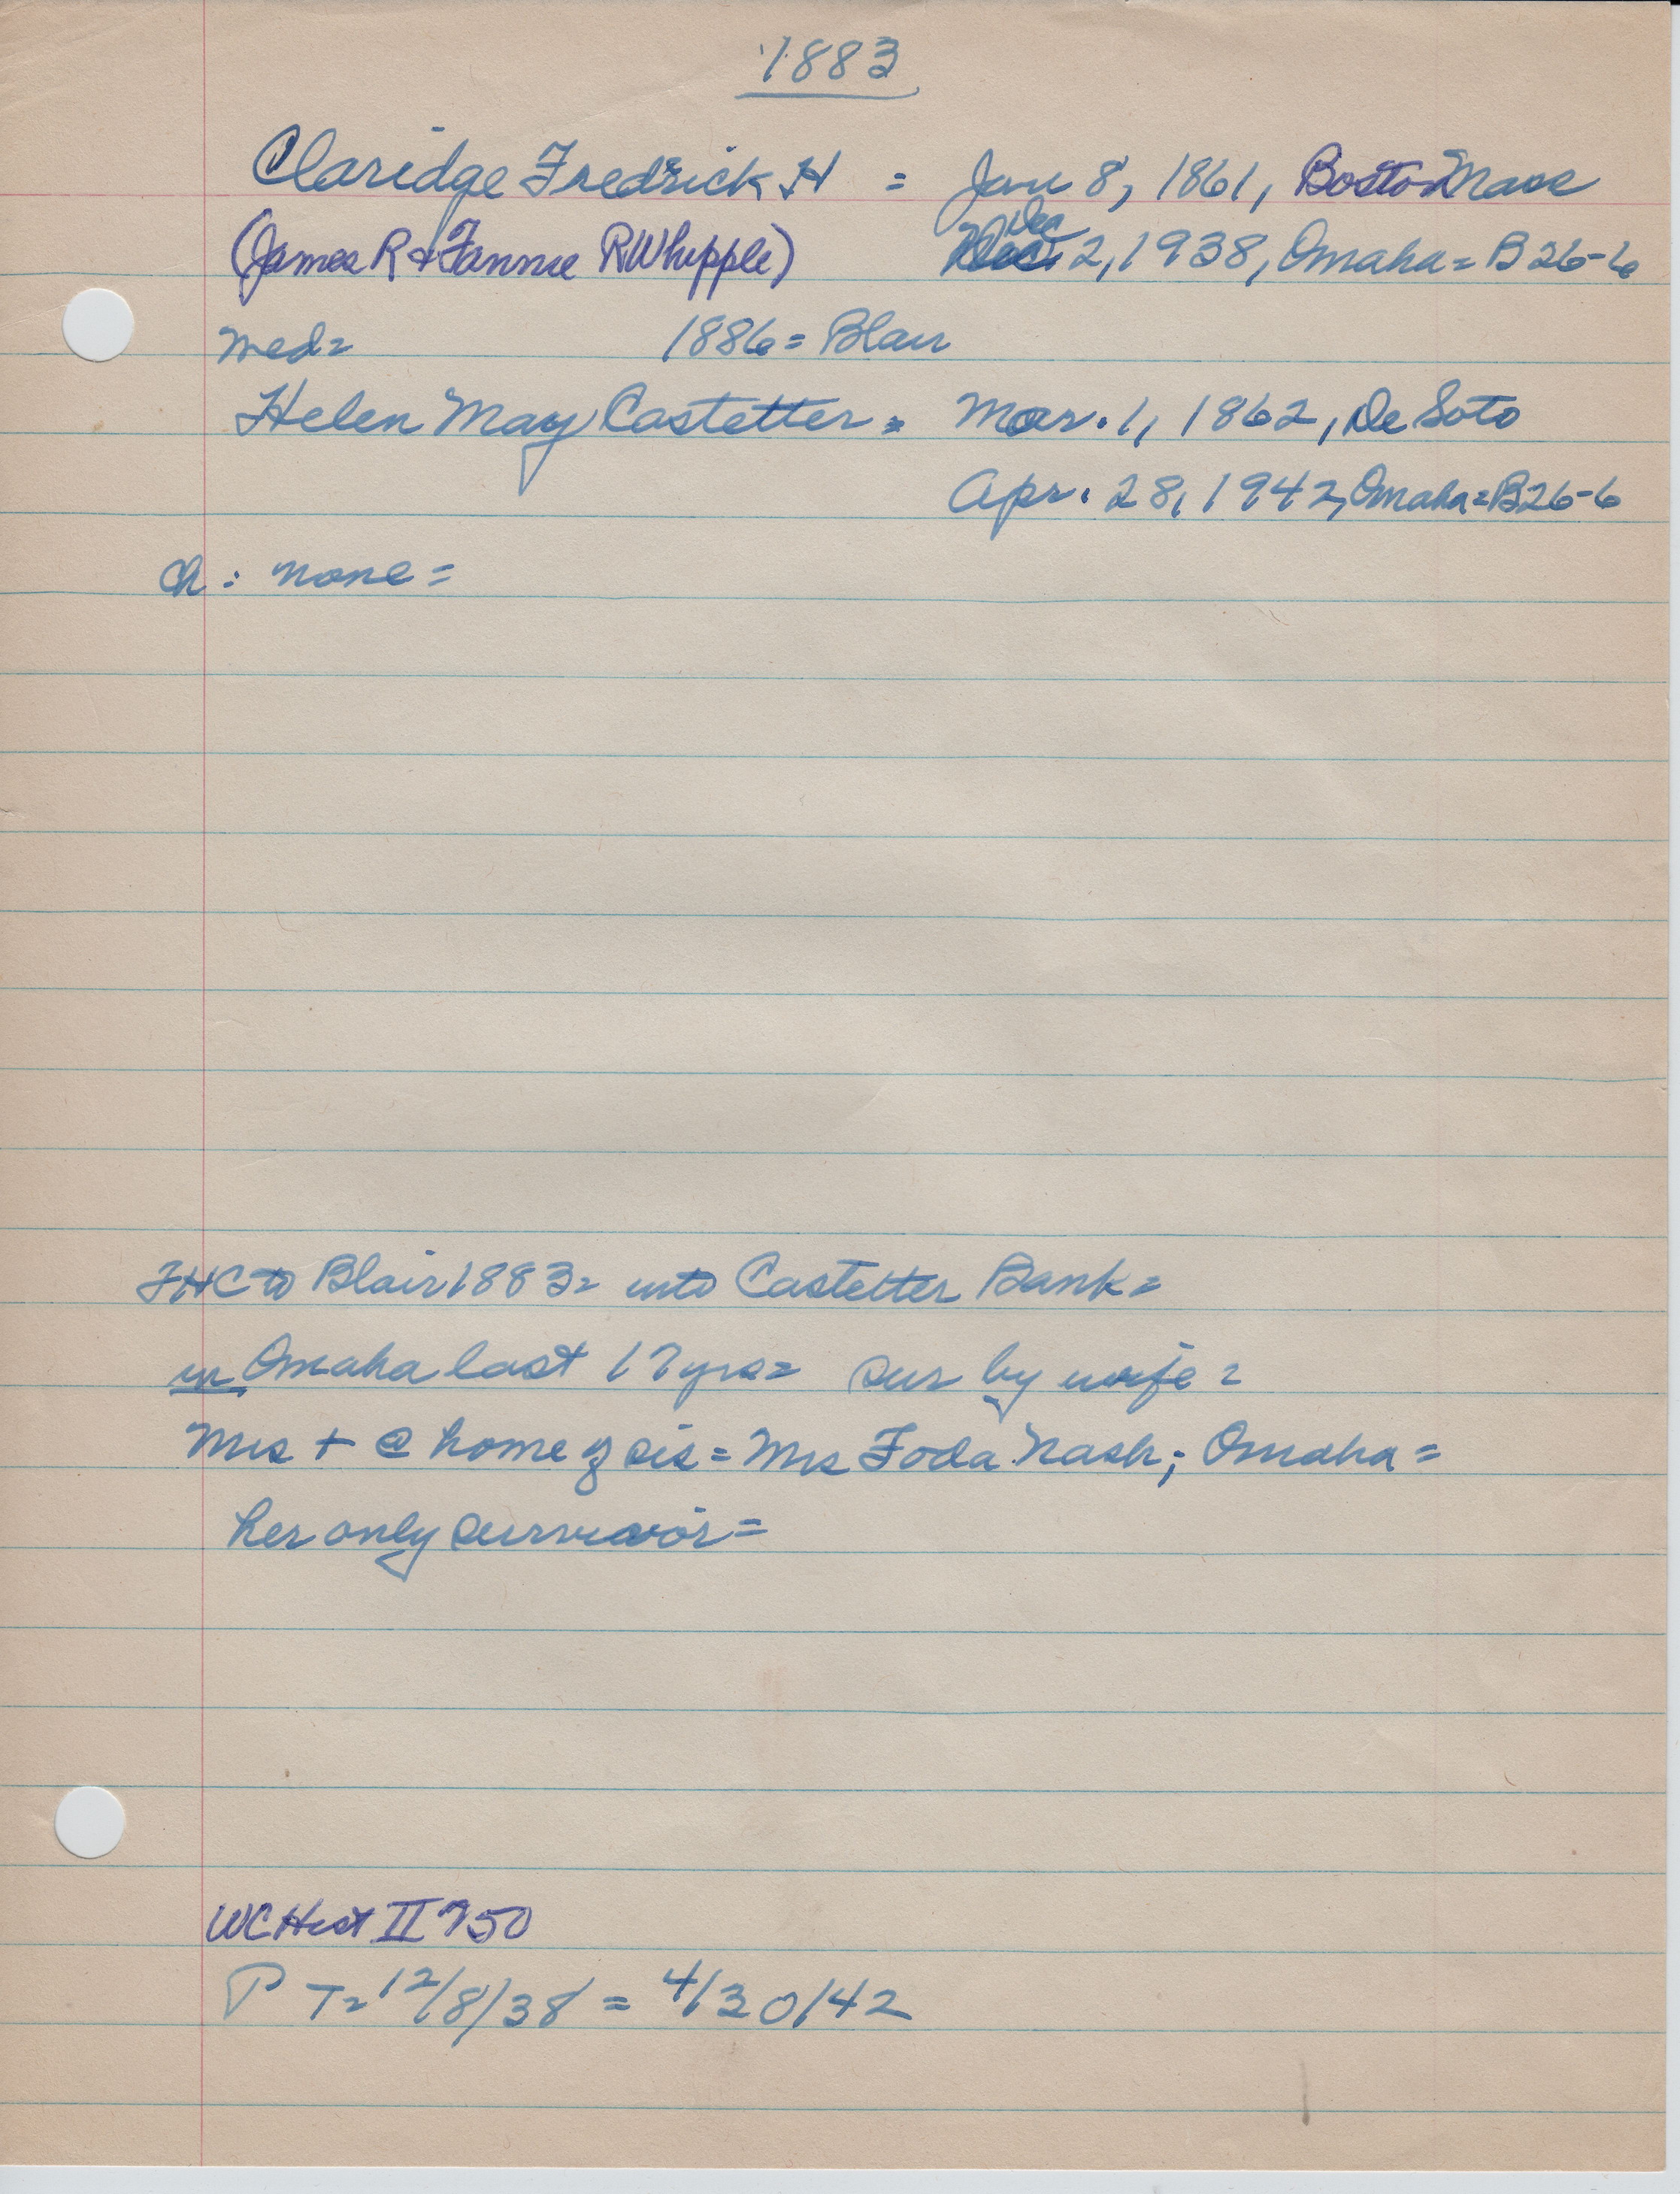 1883
Claridge Fredrick H = Jan 8, 1861, Boston Mass
(James R & Fannie R Whipple) Dec 2, 1938, Omaha = B26-6
med= 1886 = Blair
Helen May Castetter = Mar. 1, 1862, De Soto
Apr. 28, 1942, Omaha = B26-6
ch: none =
FHC to Blair 1883 = into Castetter Bank =
in Omaha last 17 yrs = sur by wife =
Mrs + @ home of sis = Mrs Foda Nash; Omaha =
her only survivor =
WC Hist II 750
P T = 12/8/38 = 4/30/42